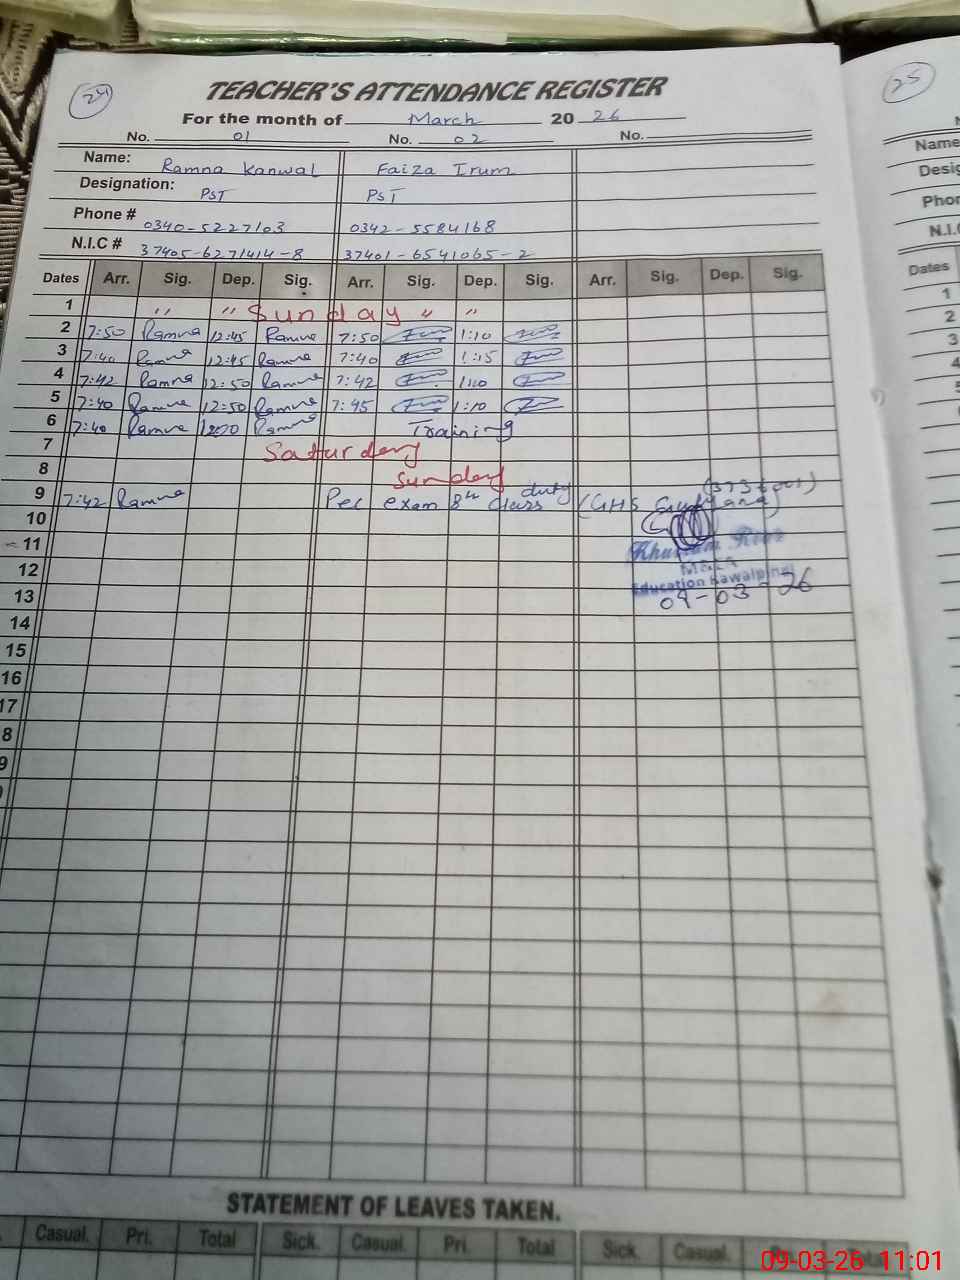 24
TEACHER'S ATTENDANCE REGISTER
For the month of March 20 26
No. 01 No. 02 No.
Name: Ramna Kanwal Faiza Irum
Designation: PST PST
Phone # 0340-5227103 0342-5584168
N.I.C # 37405-6271414-8 37401-6541065-2
Dates Arr. Sig. Dep. Sig. Arr. Sig. Dep. Sig. Arr. Sig. Dep. Sig.
1 " " Sunday " "
2 7:50 Ramna 12:45 Ramna 7:50 1:10
3 7:40 Ramna 12:45 Ramna 7:40 1:15
4 7:42 Ramna 12:50 Ramna 7:42 1:10
5 7:40 Ramna 12:50 Ramna 7:45 1:10
6 7:40 Ramna Ramna Training
7 Saturday
8 Sunday
9 7:42 Ramna Pec exam 8th class duty (GHS
10
11
12 Education Rawalpindi
13 09-03-26
14
15
16
17
8
9
STATEMENT OF LEAVES TAKEN.
Casual. Pri. Total Sick. Casual. Pri. Total Sick. Casual.
25
Name
Desig
Phon
N.I.C
Dates
1
2
3
4
5
09-03-26 11:01